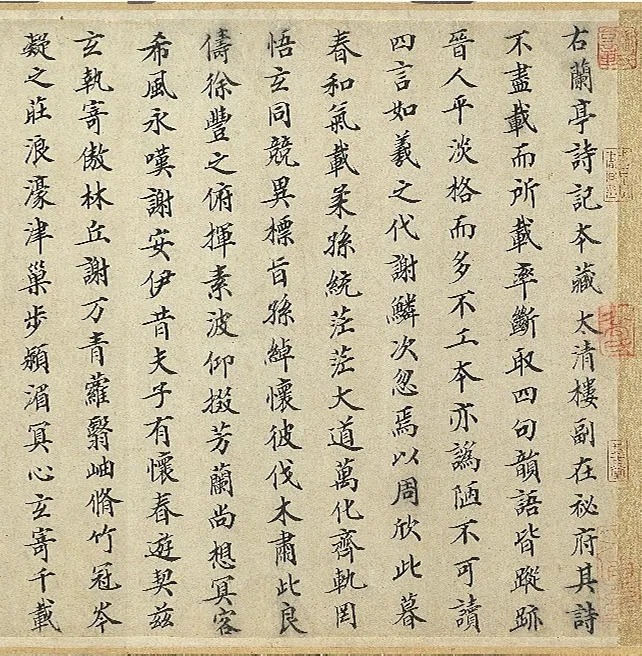 右蘭亭詩記本藏太清樓副在祕府其詩
不盡載而所載率斷取四句韻語皆蹤跡
晉人平淡格而多不工本亦譌陋不可讀
四言如羲之代謝鱗次忽焉以周欣此暮
春和氣載柔孫統茫茫大道萬化齊軌罔
悟玄同競異標旨孫綽懷彼伐木肅此良
儔徐豐之俯揮素波仰掇芳蘭尚想冥客
希風永嘆謝安伊昔夫子有懷春遊契茲
玄執寄傲林丘謝万青蘿翳岫脩竹冠岑
凝之莊浪濠津巢步潁湄冥心玄寄千載